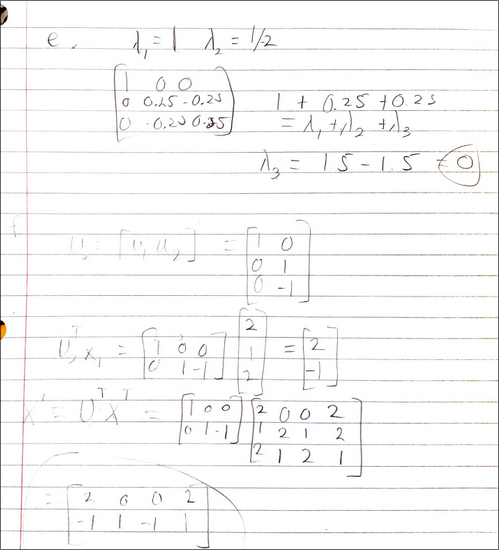 e. λ₁ = 1 λ₂ = 1/2
[1 0 0
0 0.25 -0.25
0 -0.25 0.25]
1 + 0.25 + 0.25
= λ₁ + λ₂ + λ₃
λ₃ = 1.5 - 1.5 = 0
f.
U = [u₁ u₂] = [1 0
0 1
0 -1]
Uᵀx₁ = [1 0 0
0 1 -1] [2
1
2] = [2
-1]
X' = UᵀXᵀ = [1 0 0
0 1 -1] [2 0 0 2
1 2 1 2
2 1 2 1]
= [2 0 0 2
-1 1 -1 1]